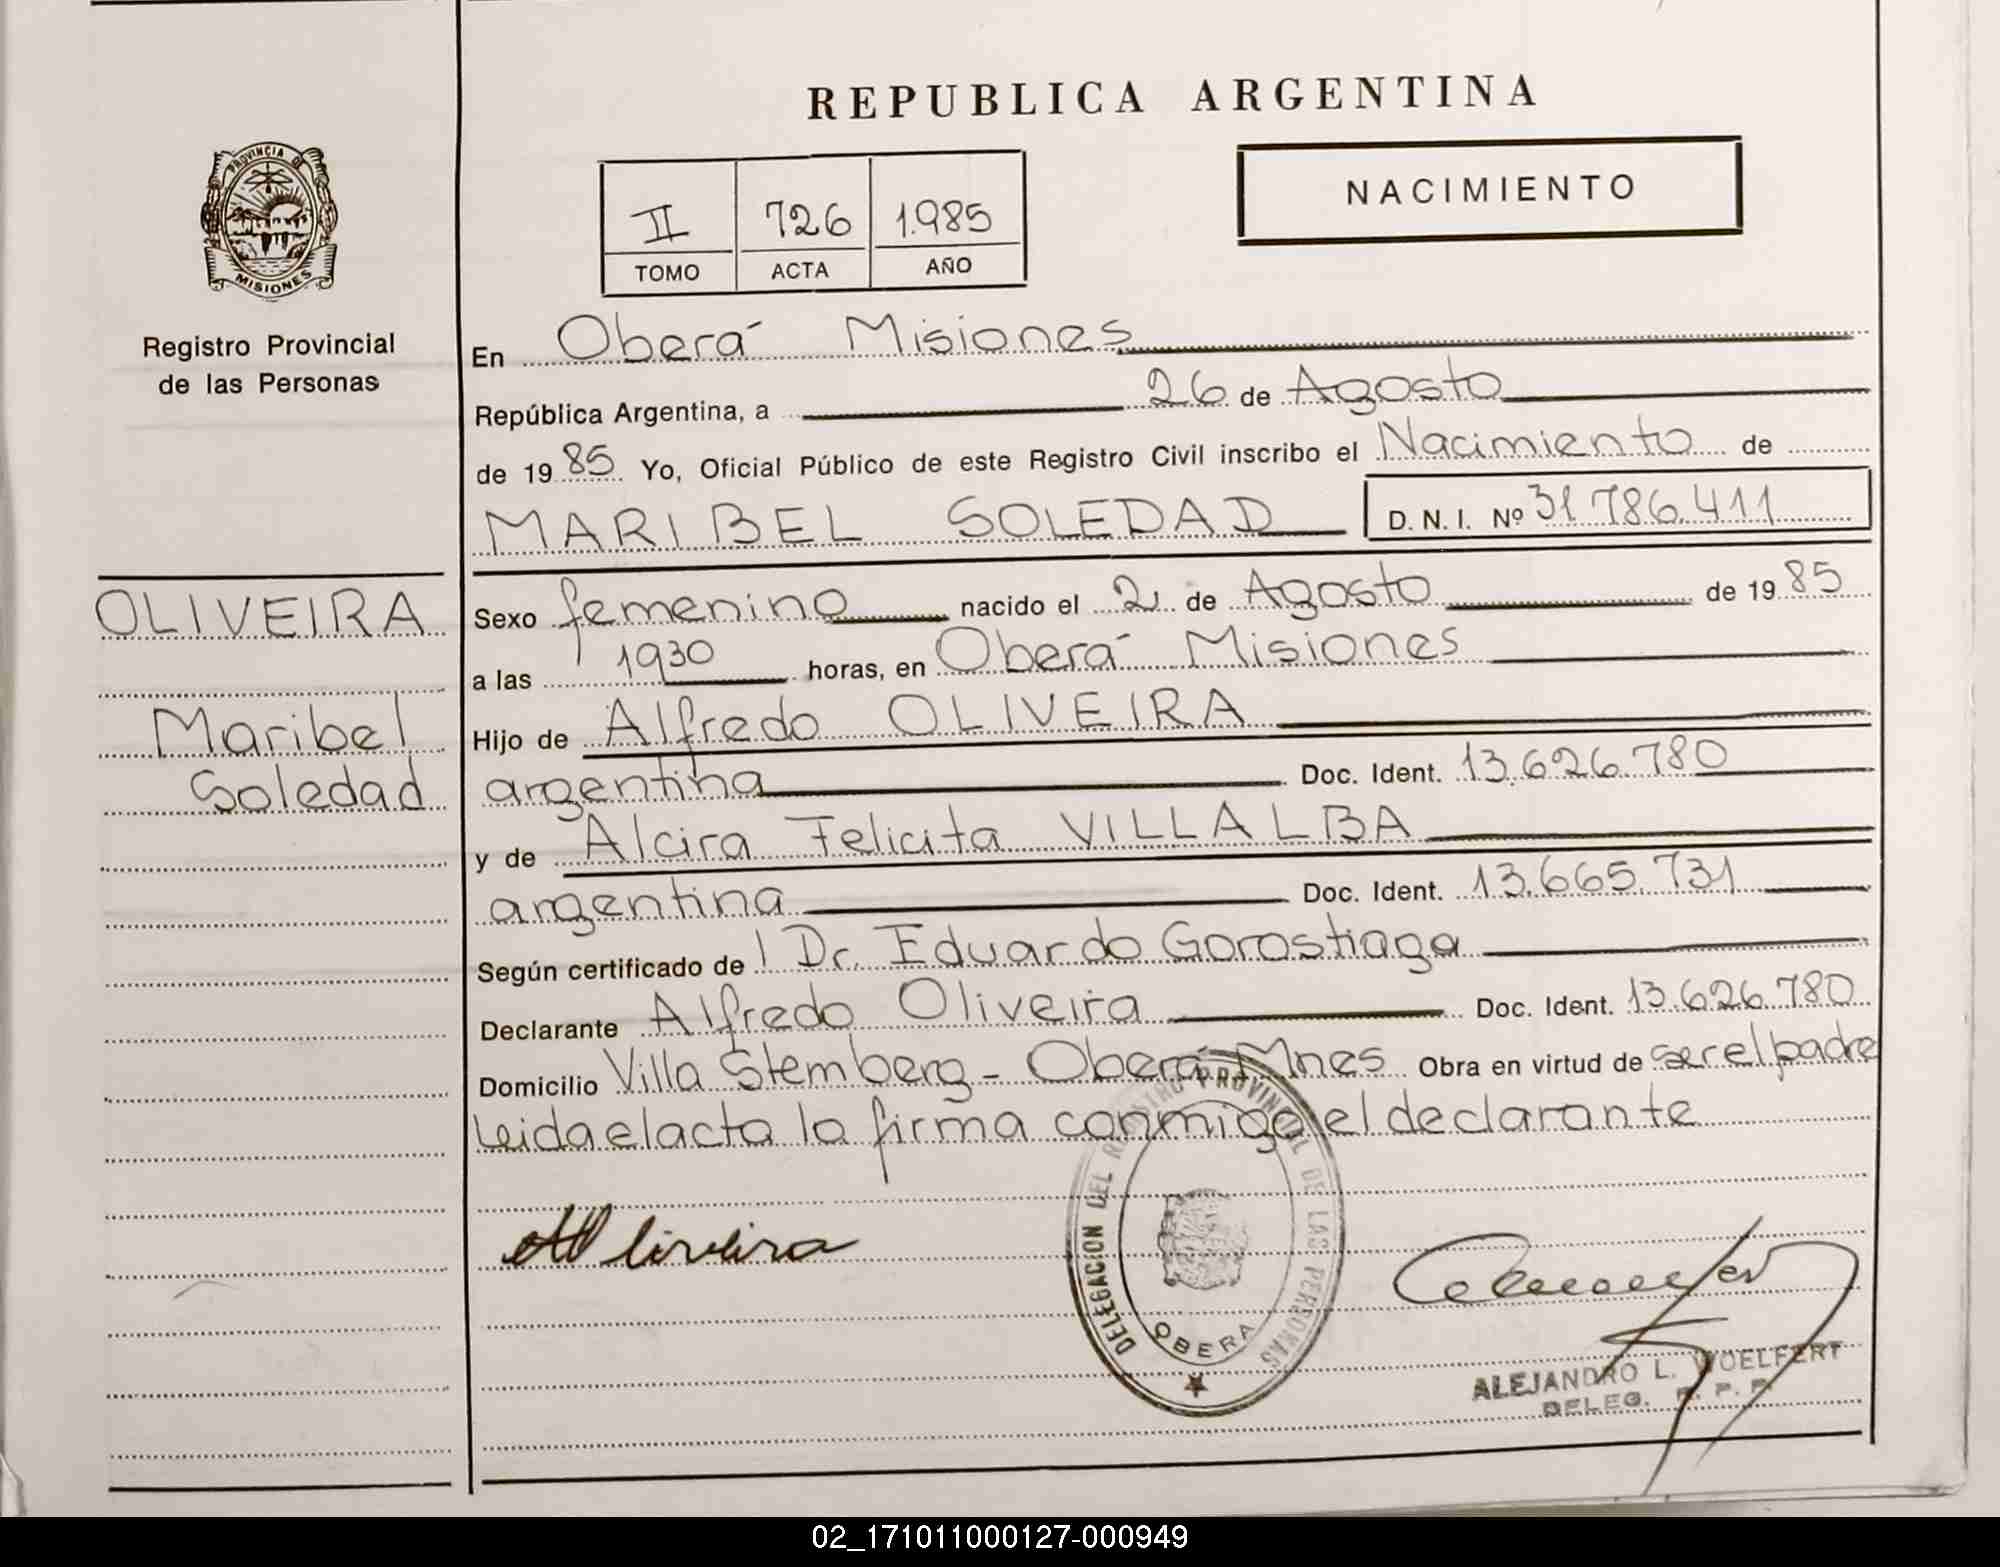 REPUBLICA ARGENTINA
PROVINCIA DE
MISIONES
Registro Provincial
de las Personas
II 726 1.985
TOMO ACTA AÑO
NACIMIENTO
En Oberá Misiones
República Argentina, a 26 de Agosto
de 19 85 Yo, Oficial Público de este Registro Civil inscribo el Nacimiento de
MARIBEL SOLEDAD D. N. I. Nº 31.786.411
OLIVEIRA
Maribel
Soledad
Sexo femenino nacido el 2 de Agosto de 19 85
a las 1930 horas, en Oberá Misiones
Hijo de Alfredo OLIVEIRA
argentina Doc. Ident. 13.626.780
y de Alcira Felicita VILLALBA
argentina Doc. Ident. 13.665.731
Según certificado de Dr. Eduardo Gorostiaga
Declarante Alfredo Oliveira Doc. Ident. 13.626.780
Domicilio Villa Stemberg - Oberá Mnes Obra en virtud de ser el padre
leida el acta la firma conmigo el declarante
DELEGACION DEL REGISTRO PROVINCIAL DE LAS PERSONAS
OBERA
ALEJANDRO L. WOELFERT
DELEG. R. P. P.
02_171011000127-000949